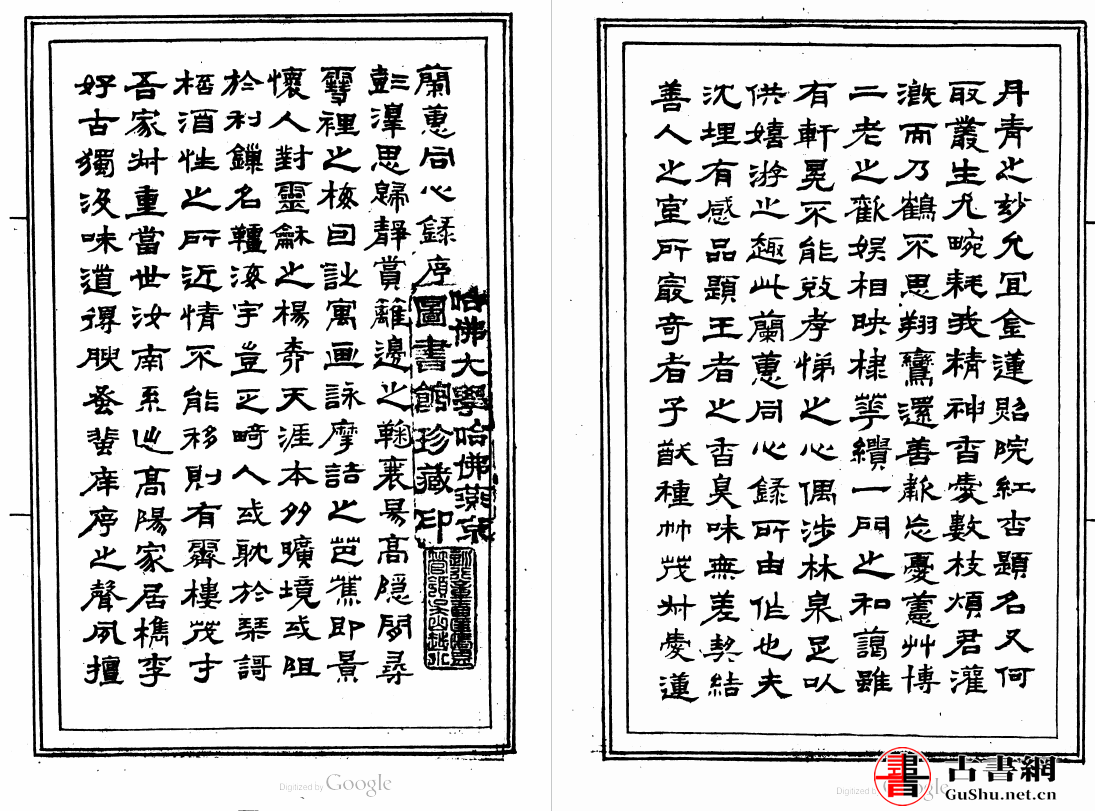 蘭蕙同心錄序
哈佛大學哈佛燕京
圖書館珍藏印
彭澤思歸靜賞籬邊之鞠襄昜高隱閑尋
雪裡之梅回訨寓画詠摩詰之芭蕉即景
懷人對靈龢之楊柳天涯本多曠境或阻
於利鏁名韁海宇豈乏畸人或耽於琹謌
桮酒性之所近情不能移則有霽樓茂才
吾家艸重當世汝南系出高陽家居檇李
好古獨深味道得腴蚤蜚庠序之聲夙擅
丹青之妙允宜金蓮貽院紅杏題名又何
取叢生九畹耗我精神香愛數枝煩君灌
溉而乃鶴不思翔鸞還善報忘憂蘐艸博
二老之歡娛相映棣華纘一門之和藹雖
有軒冕不能敚孝悌之心偶涉林泉足㕥
供嬉游之趣此蘭蕙同心錄所由作也夫
沈埋有感品題王者之香臭味無差契結
善人之室所最奇者子猷種竹茂尗愛蓮
Digitized by Google
Digitized by Google
書 古書網
GuShu.net.cn